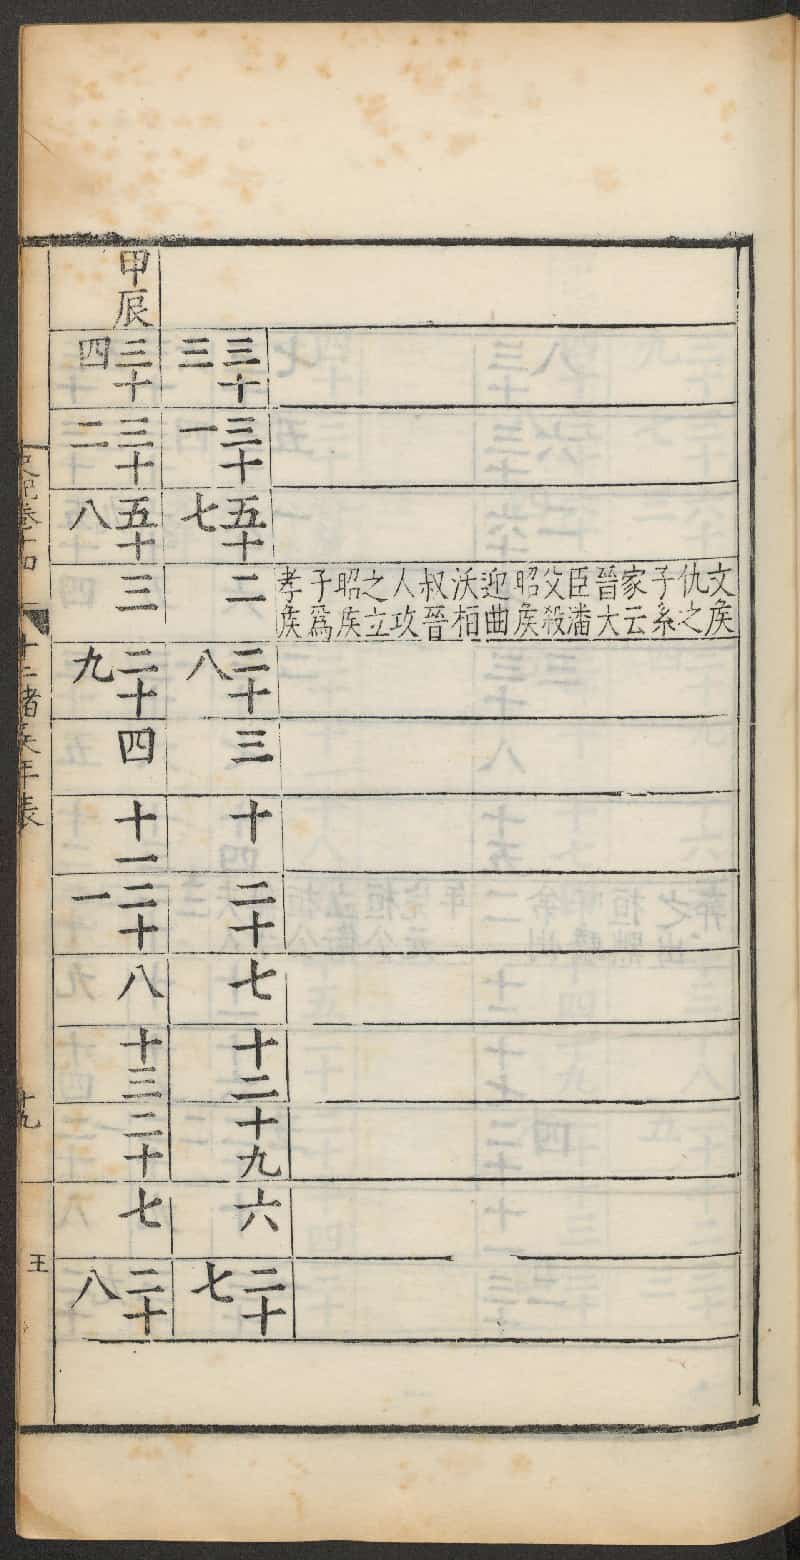 文矦
仇之
子系
家云
晉大
臣潘
父殺
昭矦
迎曲
沃桓
叔晉
人攻
之立
昭矦
子爲
孝矦
三十三
三十一
五十七
二
二十八
三
十
二十
七
十二
十九
六
二十七
甲辰
三十四
三十二
五十八
三
二十九
四
十一
二十一
八
十三
二十
七
二十八
史記卷十四
十二諸矦年表
十九
王